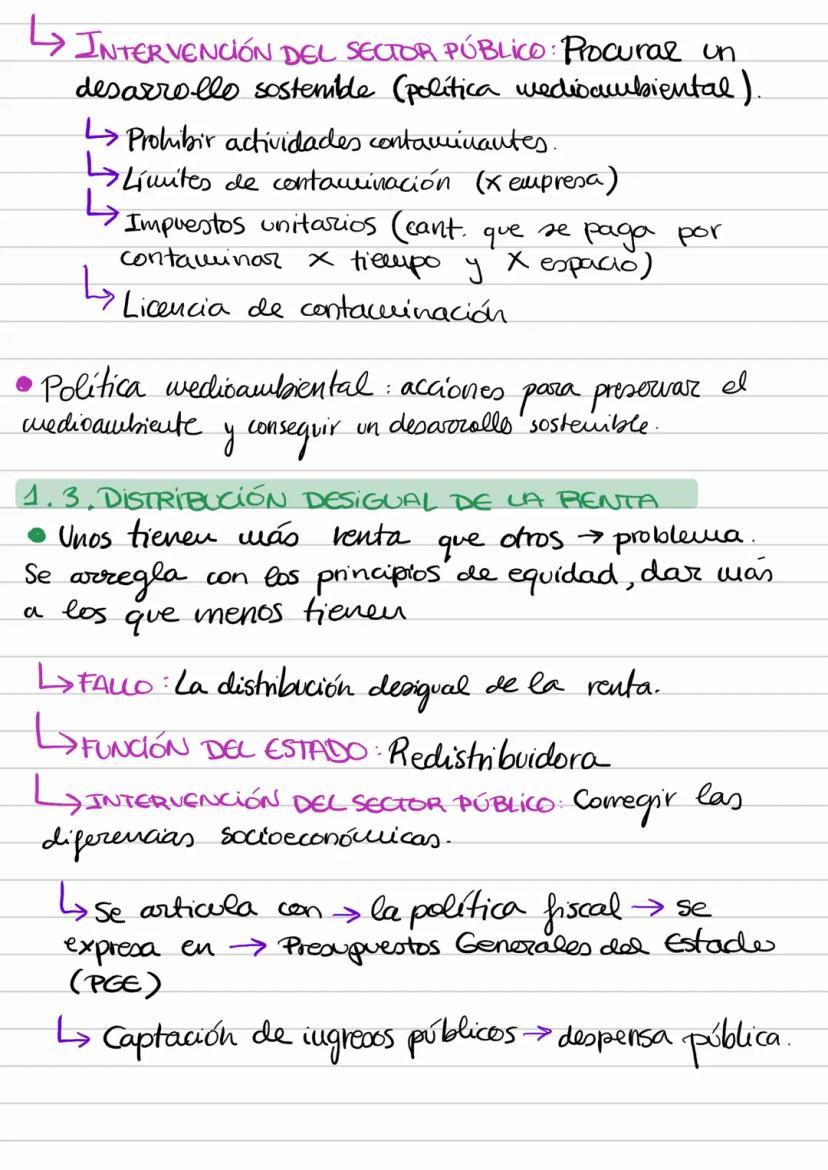 ↳ INTERVENCIÓN DEL SECTOR PÚBLICO: Procurar un
desarrollo sostenible (política medioambiental).
↳ Prohibir actividades contaminantes.
↳ Límites de contaminación (x empresa)
↳ Impuestos unitarios (cant. que se paga por
contaminar x tiempo y x espacio)
↳ Licencia de contaminación
• Política medioambiental: acciones para preservar el
medioambiente y conseguir un desarrollo sostenible.
1.3. DISTRIBUCIÓN DESIGUAL DE LA RENTA
• Unos tienen más renta que otros → problema.
Se arregla con los principios de equidad, dar más
a los que menos tienen
↳ FALLO: La distribución desigual de la renta.
↳ FUNCIÓN DEL ESTADO: Redistribuidora
↳ INTERVENCIÓN DEL SECTOR PÚBLICO: Corregir las
diferencias socioeconómicas.
↳ Se articula con → la política fiscal → se
expresa en → Presupuestos Generales del Estado
(PGE)
↳ Captación de ingresos públicos → despensa pública.